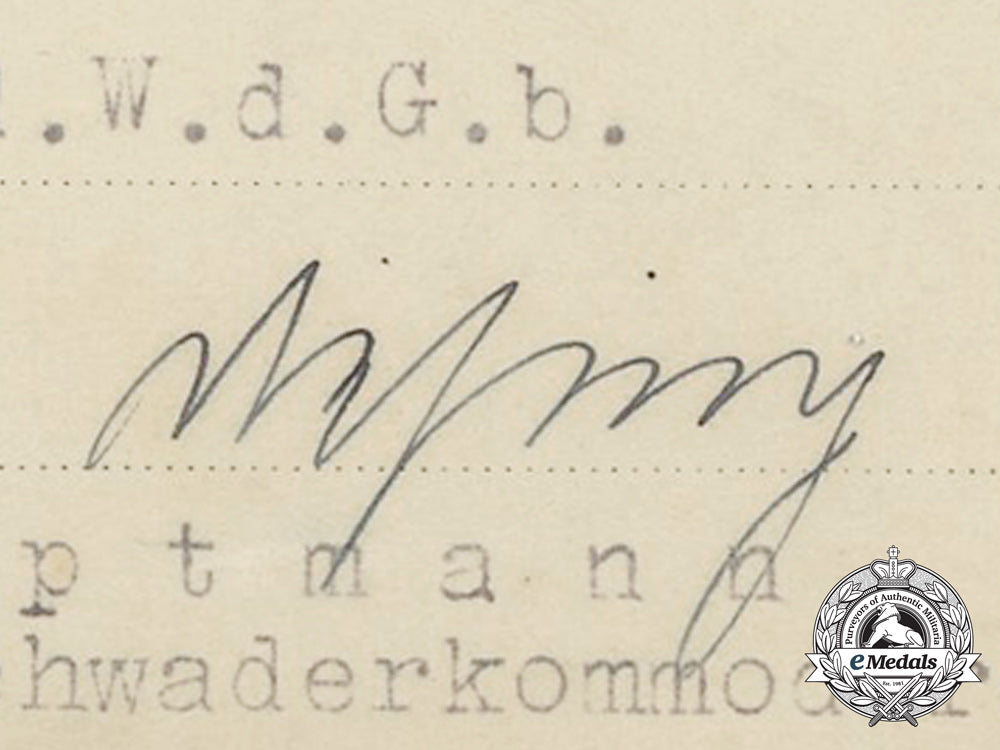 .W.d.G.b.
ptmann
hwaderkommo
Purveyors of Authentic Militaria
eMedals
Est. 1981